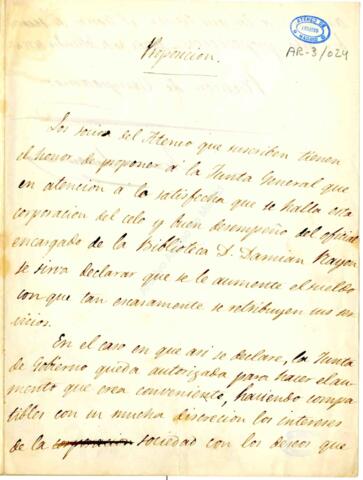 ATENEO DE MADRID
AR-3/024
Proposicion.
Los socios del Ateneo que suscriben tienen
el honor de proponer á la Junta General que
en atencion á lo satisfecha que se halla esta
corporacion del celo y buen desempeño del oficial
encargado de la Biblioteca D. Damian Rayon
se sirva declarar que se le aumente el sueldo
con que tan escasamente se retribuyen sus ser
vicios.
En el caso en que asi se declare, la Junta
de Gobierno queda autorizada para hacer el au
mento que crea conveniente, haciendo compa
tibles con su mucha discrecion los intereses
de la corporacion sociedad con los deseos que